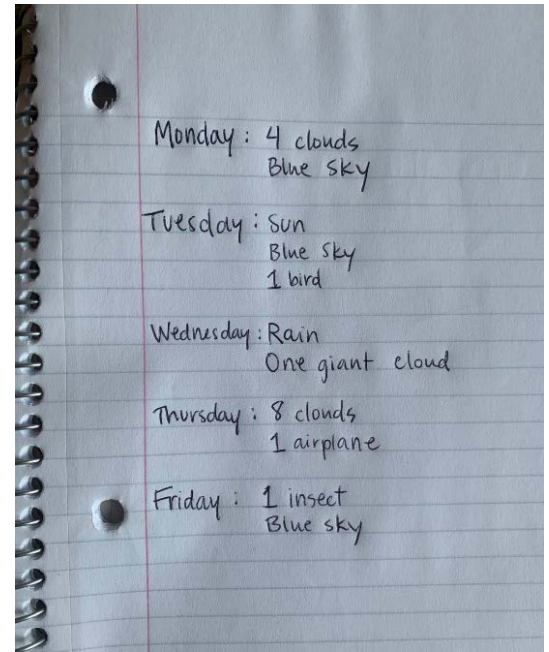 Monday: 4 clouds
Blue sky
Tuesday: Sun
Blue sky
1 bird
Wednesday: Rain
One giant cloud
Thursday: 8 clouds
1 airplane
Friday: 1 insect
Blue sky